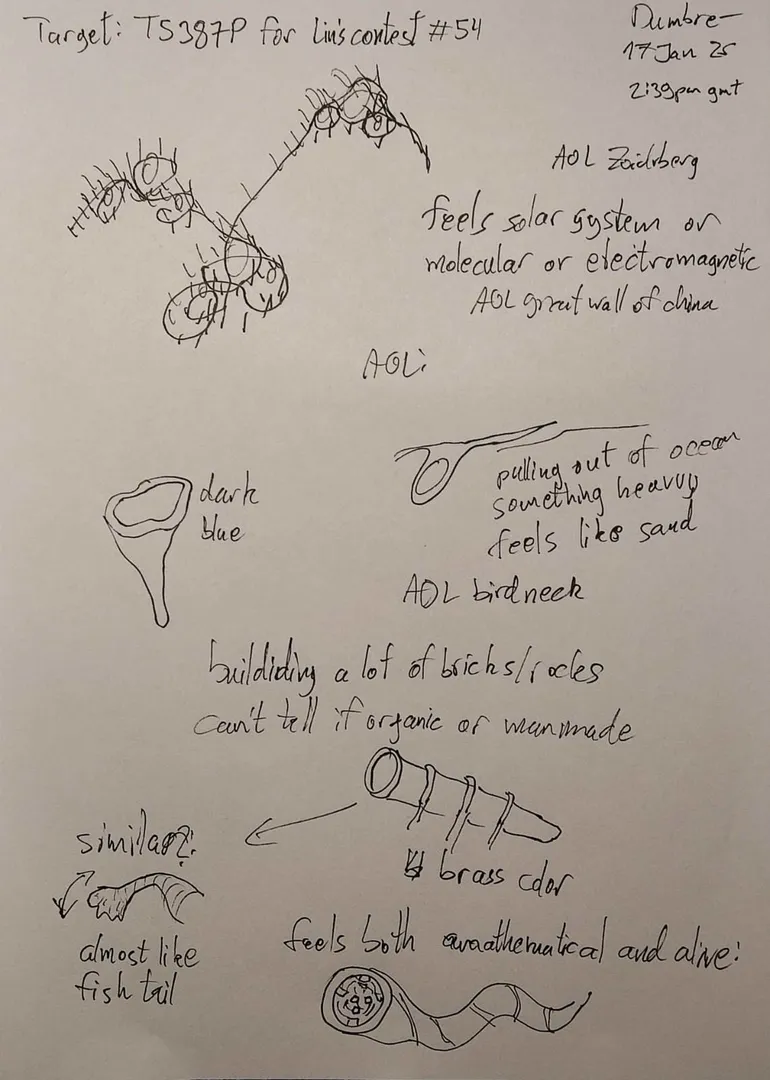 Target: TS387P for Lin's contest #54
Dumbre
17 Jan 25
2:39pm gmt
AOL Zoidrberg
feels solar system or
molecular or electromagnetic
AOL great wall of china
AOL:
dark
blue
pulling out of ocean
something heavy
feels like sand
AOL birdneck
buildiding a lot of bricks/rocks
can't tell if organic or manmade
similar?:
brass color
almost like
fish tail
feels both and alive: